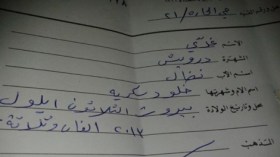 الاسم عدي
الشهرة درويش
اسم الاب نضال
اسم الام وشهرتها خلود سكرية
محل وتاريخ الولادة بيروت الثلاثون ايلول
٢٠١٣ الفان وثلاثة
المذهب